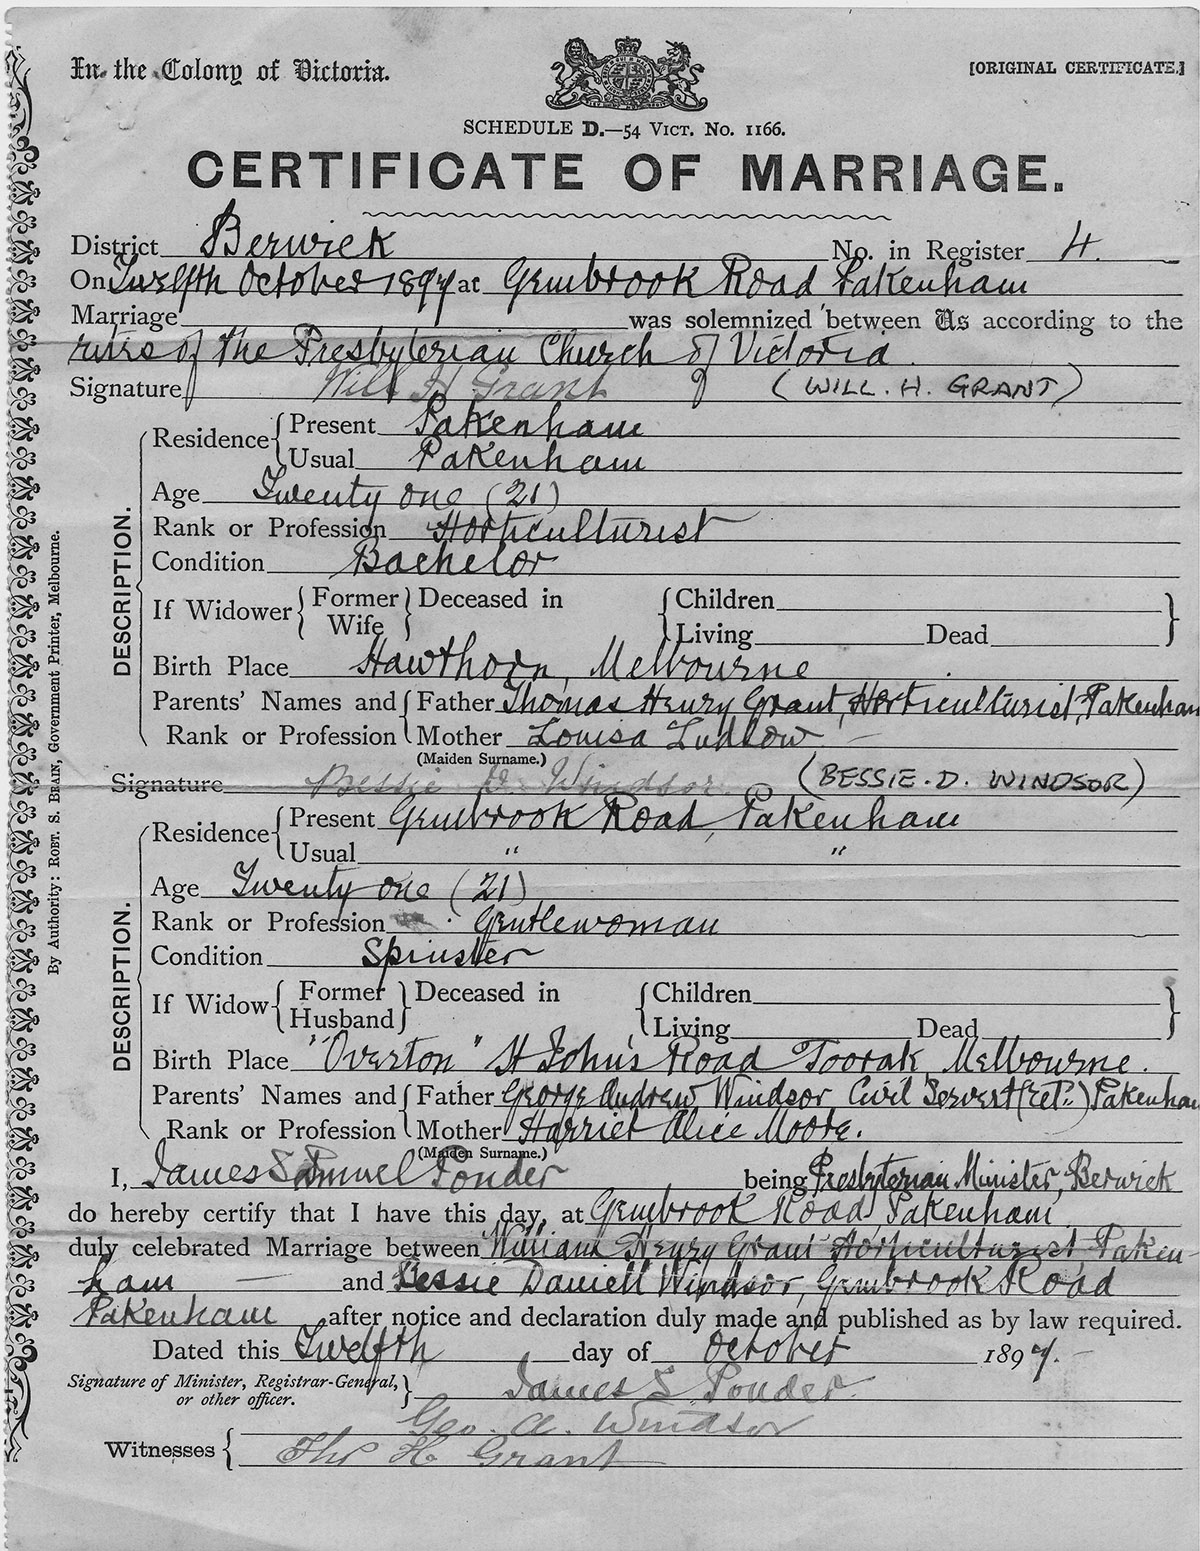 In the Colony of Victoria.
[ORIGINAL CERTIFICATE.]
SCHEDULE D.—54 VICT. No. 1166.
CERTIFICATE OF MARRIAGE.
District Berwick No. in Register 4.
On Twelfth October 1897 at Gembrook Road Pakenham
Marriage was solemnized between Us according to the
rites of the Presbyterian Church of Victoria
Signature Will H Grant (WILL. H. GRANT)
DESCRIPTION.
Residence { Present Pakenham
Usual Pakenham
Age Twenty one (21)
Rank or Profession Horticulturist
Condition Bachelor
If Widower { Former Wife } Deceased in { Children
Living Dead }
Birth Place Hawthorn, Melbourne
Parents' Names and { Father Thomas Henry Grant, Horticulturist, Pakenham
Rank or Profession { Mother Louisa Ludlow —
(Maiden Surname.)
Signature Bessie D Windsor. (BESSIE. D. WINDSOR)
DESCRIPTION.
Residence { Present Gembrook Road, Pakenham
Usual " "
Age Twenty one (21)
Rank or Profession Gentlewoman
Condition Spinster
If Widow { Former Husband } Deceased in { Children
Living Dead }
Birth Place "Overton" St John's Road Toorak, Melbourne.
Parents' Names and { Father George Andrew Windsor Civil Servert (ret:) Pakenham
Rank or Profession { Mother Harriet Alice Moore.
(Maiden Surname.)
I, James Samuel Ponder being Presbyterian Minister, Berwick
do hereby certify that I have this day, at Gembrook Road, Pakenham
duly celebrated Marriage between William Henry Grant Horticulturist Paken-
ham — and Bessie Daniell Windsor, Gembrook Road
Pakenham after notice and declaration duly made and published as by law required.
Dated this Twelfth day of October 1897.
Signature of Minister, Registrar-General,
or other officer. } James S Ponder.
Witnesses { Geo. A. Windsor
Thos H Grant
By Authority: ROBT. S. BRAIN, Government Printer, Melbourne.